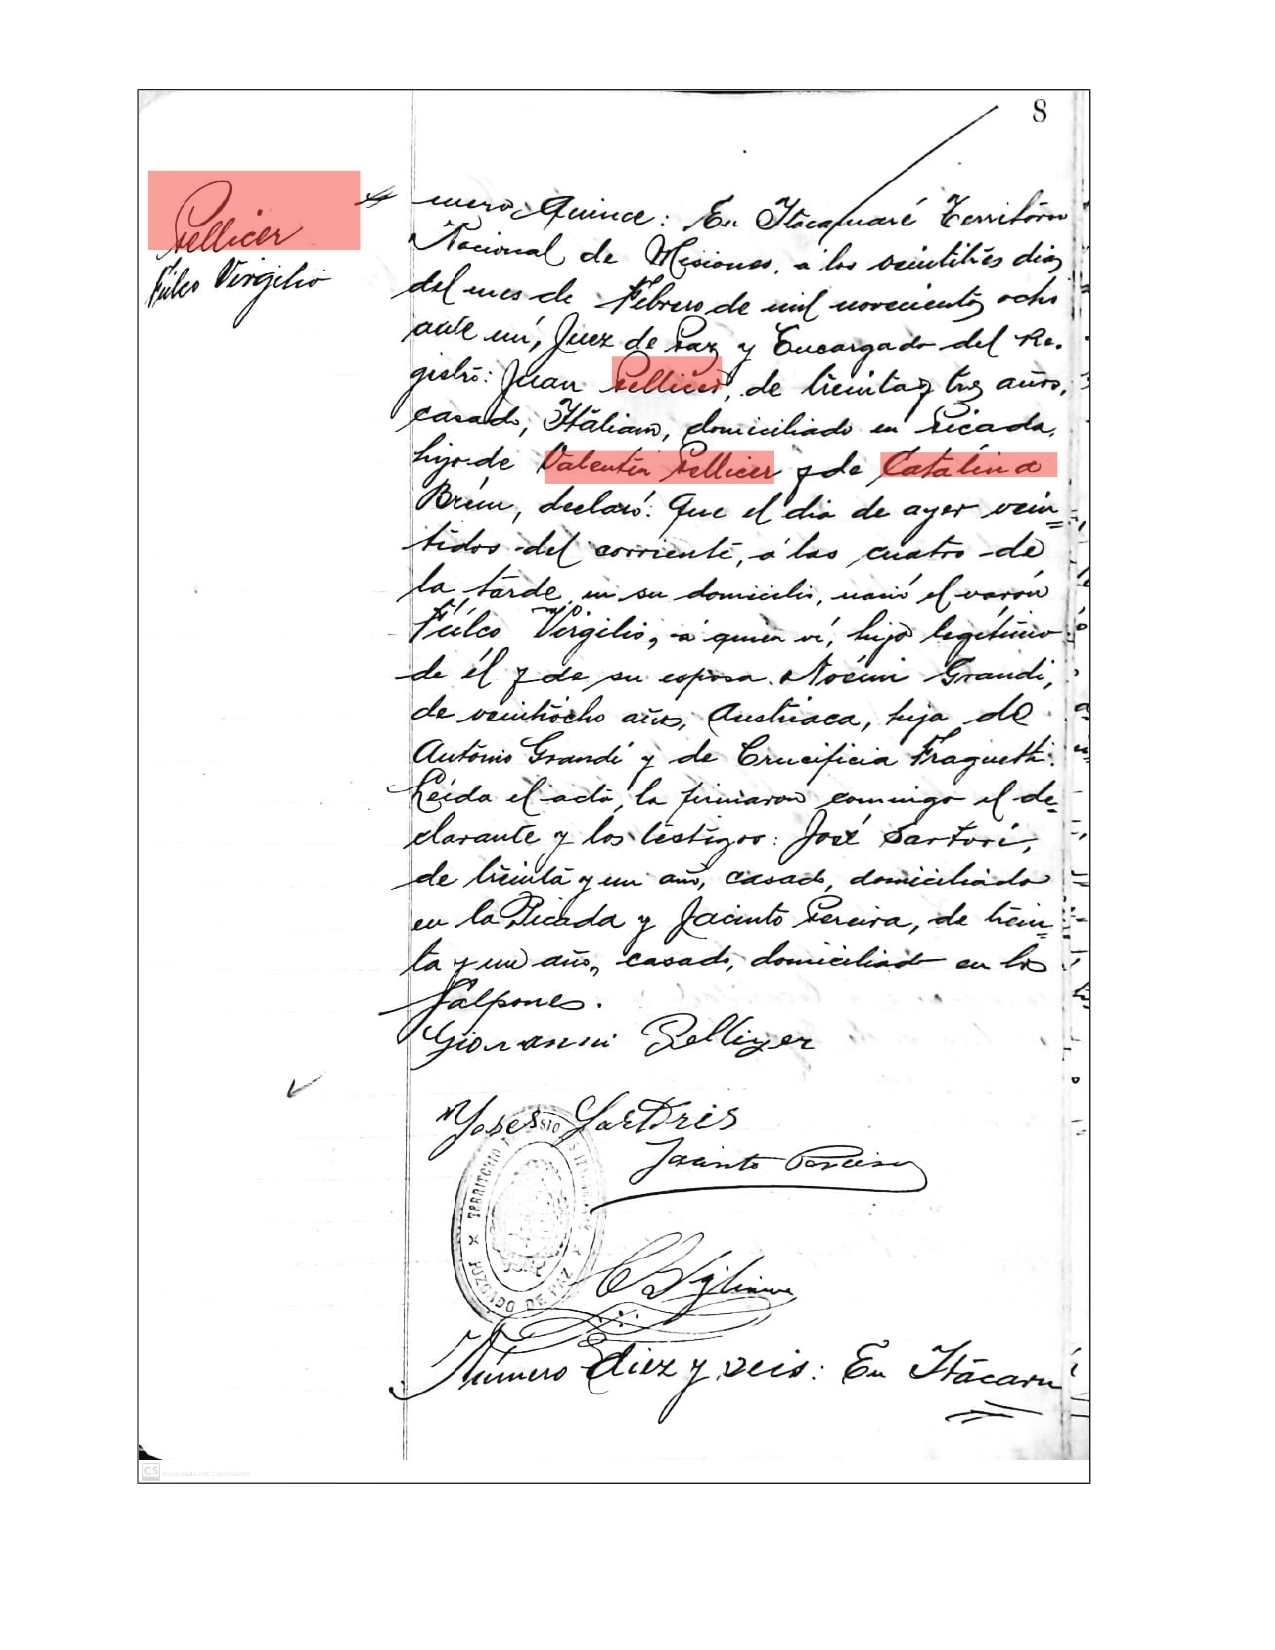 8
Pellicer
Fulco Virgilio
mero Quince: En Itacaruaré Territorio
Nacional de Misiones, a los veintitrés dias
del mes de Febrero de mil novecientos ocho
ante mí, Juez de Paz y Encargado del Re-
gistro: Juan Pellicer, de treinta y tres años,
casado, Italiano, domiciliado en Picada,
hijo de Valentín Pellicer y de Catalina
Brun, declaró: Que el dia de ayer vein=
tidos del corriente, a las cuatro de
la tarde en su domicilio, nació el varón
Fulco Virgilio, a quien ví, hijo legítimo
de él y de su esposa Noémi Grandi,
de veintiocho años, Austriaca, hija de
António Grandi y de Crucificia Fraguetti.
Leída el acta, la firmaron conmigo el de=
clarante y los testigos: José Sartori,
de treinta y un año, casado, domiciliado
en la Picada y Jacinto Pereira, de trein=
ta y un año, casado, domiciliado en los
Galpones.
Giovanni Pellizer
Sartoris
Jacinto Pereira
TERRITORIO DE MISIONES
JUZGADO DE PAZ
Número Diez y seis: En Itácaru
CS